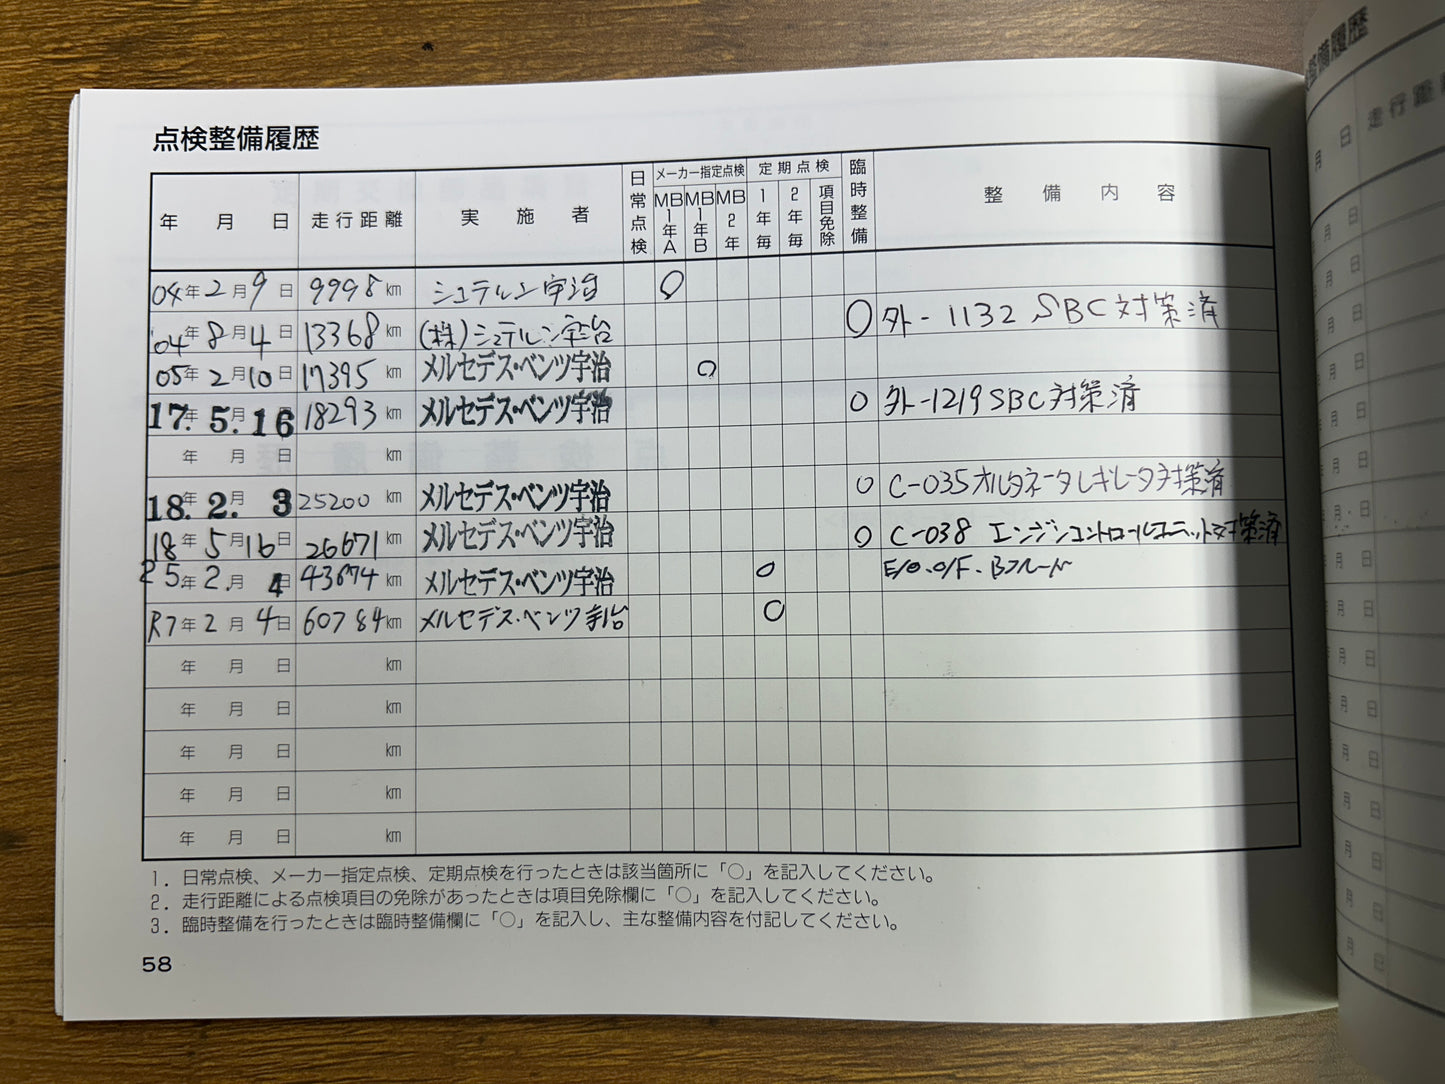 点検整備履歴
年 月 日 走行距離 実施者 日常点検 メーカー指定点検 MB1年A MB1年B MB2年 定期点検 1年毎 2年毎 項目免除 臨時整備 整備内容
04年2月9日 9998km シュテルン宇治 ○
'04年8月4日 13368km (株)シュテルン宇治 ○ 外-1132 SBC対策済
05年2月10日 17395km メルセデス・ベンツ宇治 ○
17.年5.月16日 18293km メルセデス・ベンツ宇治 ○ 外-1219 SBC対策済
年 月 日 km
18.年2.月3日 25200km メルセデス・ベンツ宇治 ○ C-035オルタネータレギレータ対策済
18年5月16日 26671km メルセデス・ベンツ宇治 ○ C-038 エンジンコントロールユニット対策済
25年2.月4日 43674km メルセデス・ベンツ宇治 ○ E/O.O/F.Bフルード
R7年2月4日 60784km メルセデス・ベンツ宇治 ○
年 月 日 km
年 月 日 km
年 月 日 km
年 月 日 km
年 月 日 km
1.日常点検、メーカー指定点検、定期点検を行ったときは該当箇所に「○」を記入してください。
2.走行距離による点検項目の免除があったときは項目免除欄に「○」を記入してください。
3.臨時整備を行ったときは臨時整備欄に「○」を記入し、主な整備内容を付記してください。
58